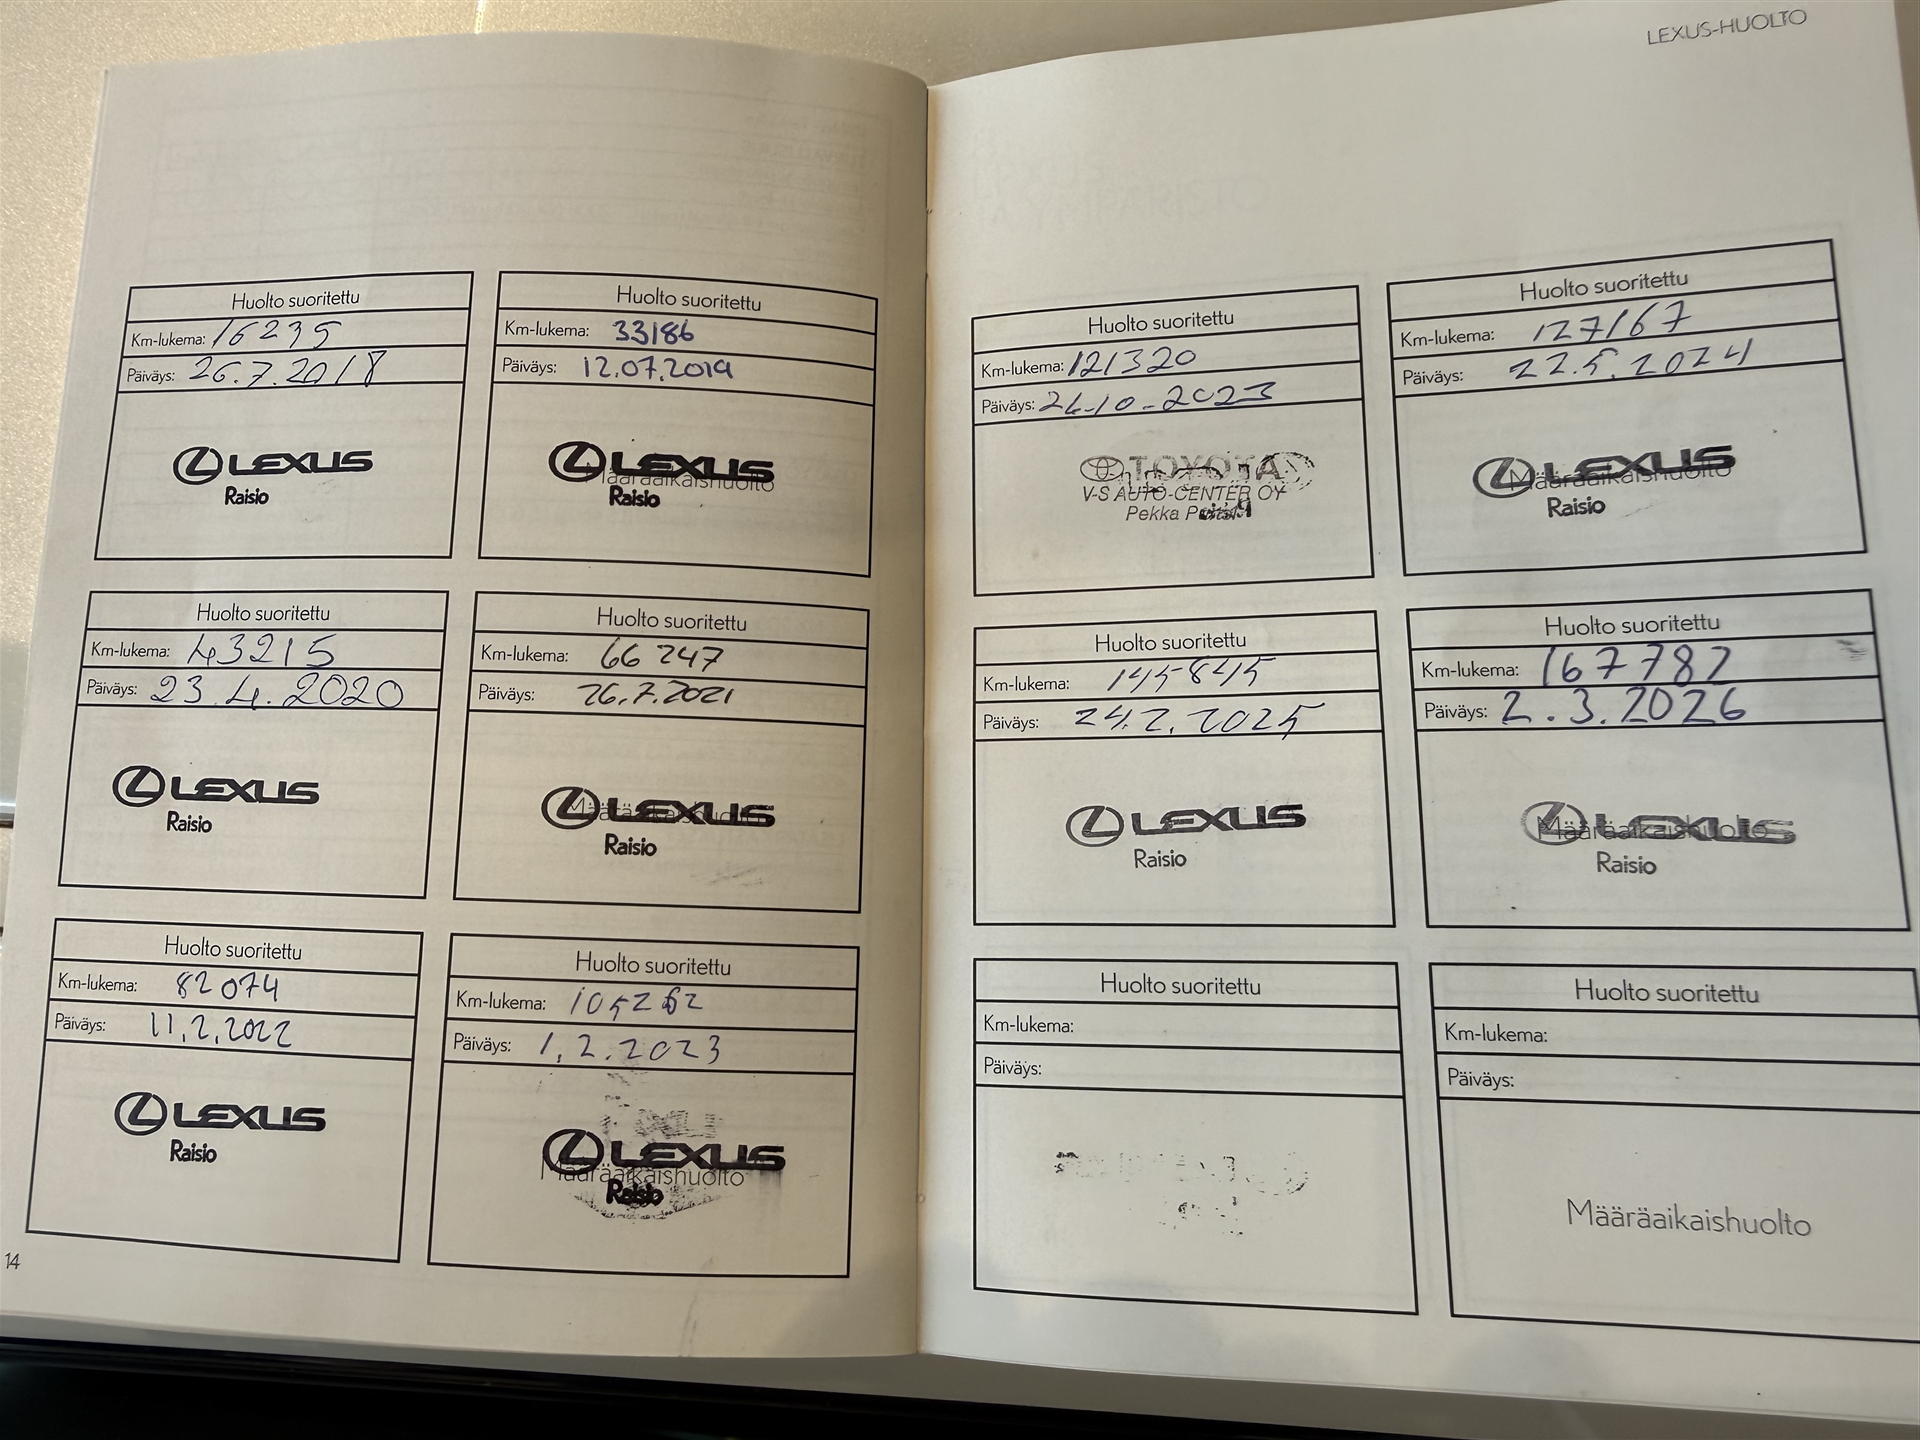 LEXUS-HUOLTO
Huolto suoritettu
Km-lukema: 16235
Päiväys: 26.7.2018
LEXUS
Raisio
Huolto suoritettu
Km-lukema: 33186
Päiväys: 12.07.2019
LEXUS
Määräaikaishuolto
Raisio
Huolto suoritettu
Km-lukema: 43215
Päiväys: 23.4.2020
LEXUS
Raisio
Huolto suoritettu
Km-lukema: 66 247
Päiväys: 26.7.2021
LEXUS
Määräaikaishuolto
Raisio
Huolto suoritettu
Km-lukema: 82 074
Päiväys: 11.2.2022
LEXUS
Raisio
Huolto suoritettu
Km-lukema: 105262
Päiväys: 1.2.2023
LEXUS
Määräaikaishuolto
Raisio
14
Huolto suoritettu
Km-lukema: 121320
Päiväys:
TOYOTA
V-S AUTO-CENTER OY
Pekka
Huolto suoritettu
Km-lukema: 127167
Päiväys: 22.5.2024
LEXUS
Määräaikaishuolto
Raisio
Huolto suoritettu
Km-lukema: 145845
Päiväys: 24.2.2025
LEXUS
Raisio
Huolto suoritettu
Km-lukema: 167782
Päiväys: 2.3.2026
LEXUS
Määräaikaishuolto
Raisio
Huolto suoritettu
Km-lukema:
Päiväys:
Huolto suoritettu
Km-lukema:
Päiväys:
Määräaikaishuolto